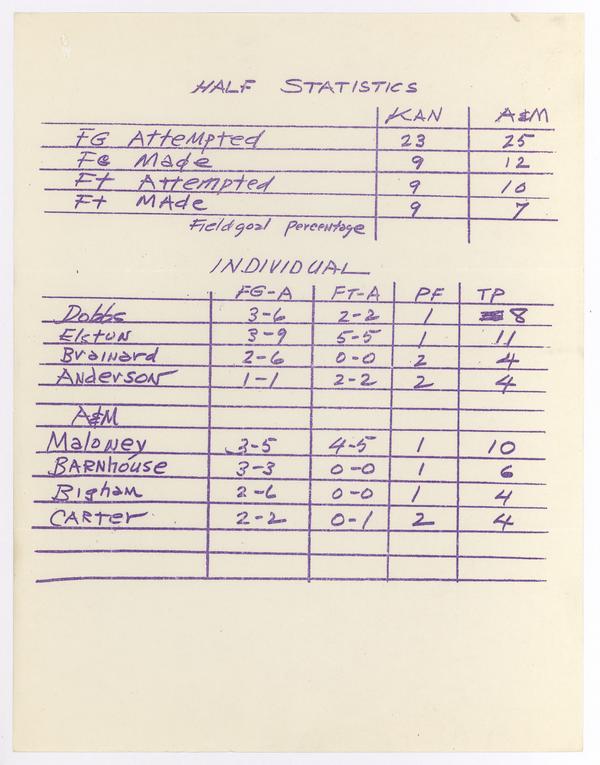 HALF STATISTICS
KAN A&M
FG Attempted 23 25
FG Made 9 12
Ft Attempted 9 10
Ft Made 9 7
Fieldgoal percentage
INDIVIDUAL
FG-A FT-A PF TP
Dobbs 3-6 2-2 1 8
Elstun 3-9 5-5 1 11
Brainard 2-6 0-0 2 4
Anderson 1-1 2-2 2 4
A&M
Maloney 3-5 4-5 1 10
BARNHOUSE 3-3 0-0 1 6
Bigham 2-6 0-0 1 4
CARTER 2-2 0-1 2 4